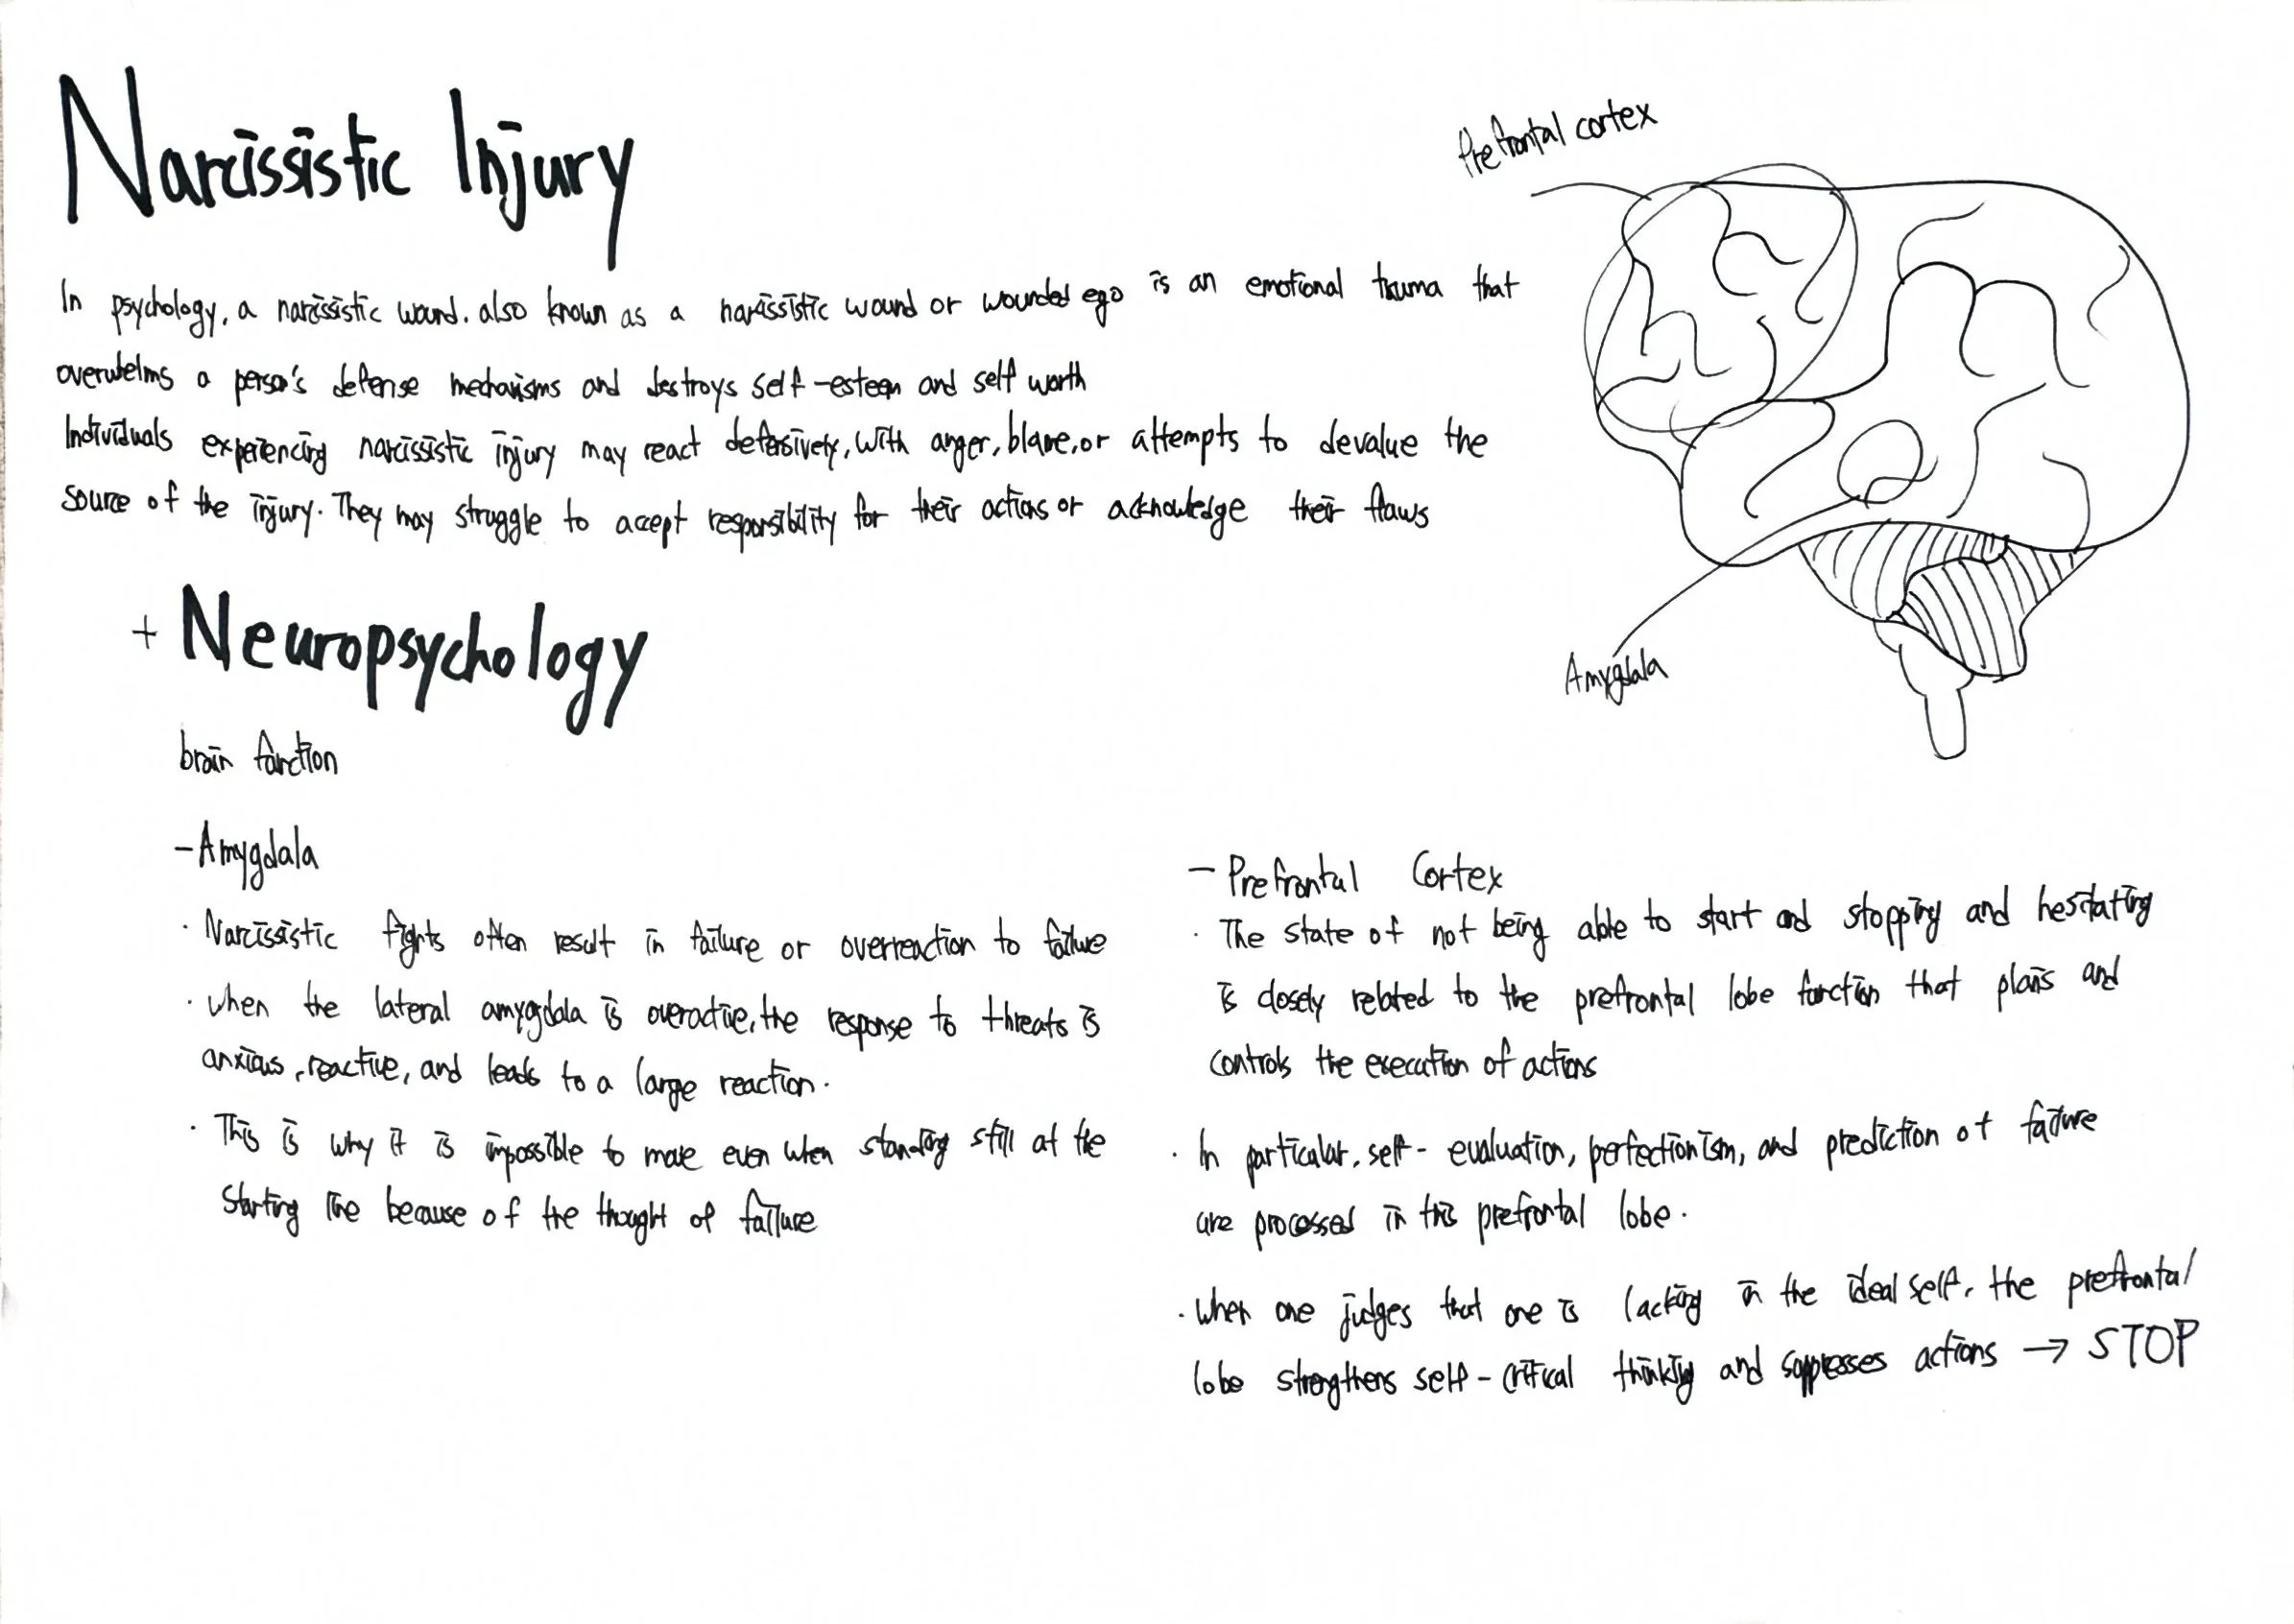 Narcissistic Injury
Prefrontal cortex
In psychology, a narcissistic wound. also known as a narcissistic wound or wounded ego is an emotional trauma that
overwhelms a person's defense mechanisms and destroys self-esteem and self worth
Individuals experiencing narcissistic injury may react defensively, with anger, blame, or attempts to devalue the
source of the injury. They may struggle to accept responsibility for their actions or acknowledge their flaws
Amygdala
+ Neuropsychology
brain function
- Amygdala
· Narcissistic fights often result in failure or overreaction to failure
· When the lateral amygdala is overactive, the response to threats is
anxious, reactive, and leads to a large reaction.
· This is why it is impossible to move even when standing still at the
starting line because of the thought of failure
- Prefrontal Cortex
· The state of not being able to start and stopping and hesitating
is closely related to the prefrontal lobe function that plans and
controls the execution of actions
· In particular, self-evaluation, perfectionism, and prediction of failure
are processed in this prefrontal lobe.
· When one judges that one is lacking in the ideal self, the prefrontal
lobe strengthens self-critical thinking and suppresses actions → STOP